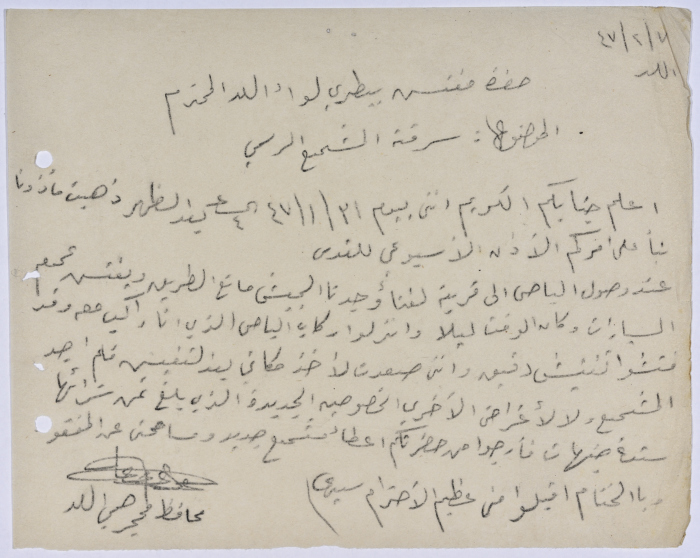 ٤٧/٢/٧
اللد
حضرة مفتش بيطري لواء اللد المحترم
الموضوع: سرقة الشميع الرسمي
اعلم جنابكم الكريم انني بيوم ٤٧/١/٣١ الساعة ٤ بعد الظهر ذهبت مأذونا
بناً على امركم الأذن الأسبوعي للقدس
عند وصول الباص الى قرية لفتا وجدنا الجيش مانع الطريق ويفتش جميع
السيارات وكان الوقت ليلا وانزلوا ركاب الباص الذي انا راكب معه وقد
فتشوا تفتيش دقيق وانني صعدت لأخذ مكاني بعد التفتيش فلم اجد
الشميع ولا لأغراض الأخرى الخصوصيه الجديدة الذي يبلغ ثمن شرائها
ستة جنيهات فأرجوا من حضرتكم اعطائي شميع جديد ومسامحتي عن المفقود
وبالختام اقبلوا مني عظيم الأحترام سيدي
محافظ محجر صحي اللد